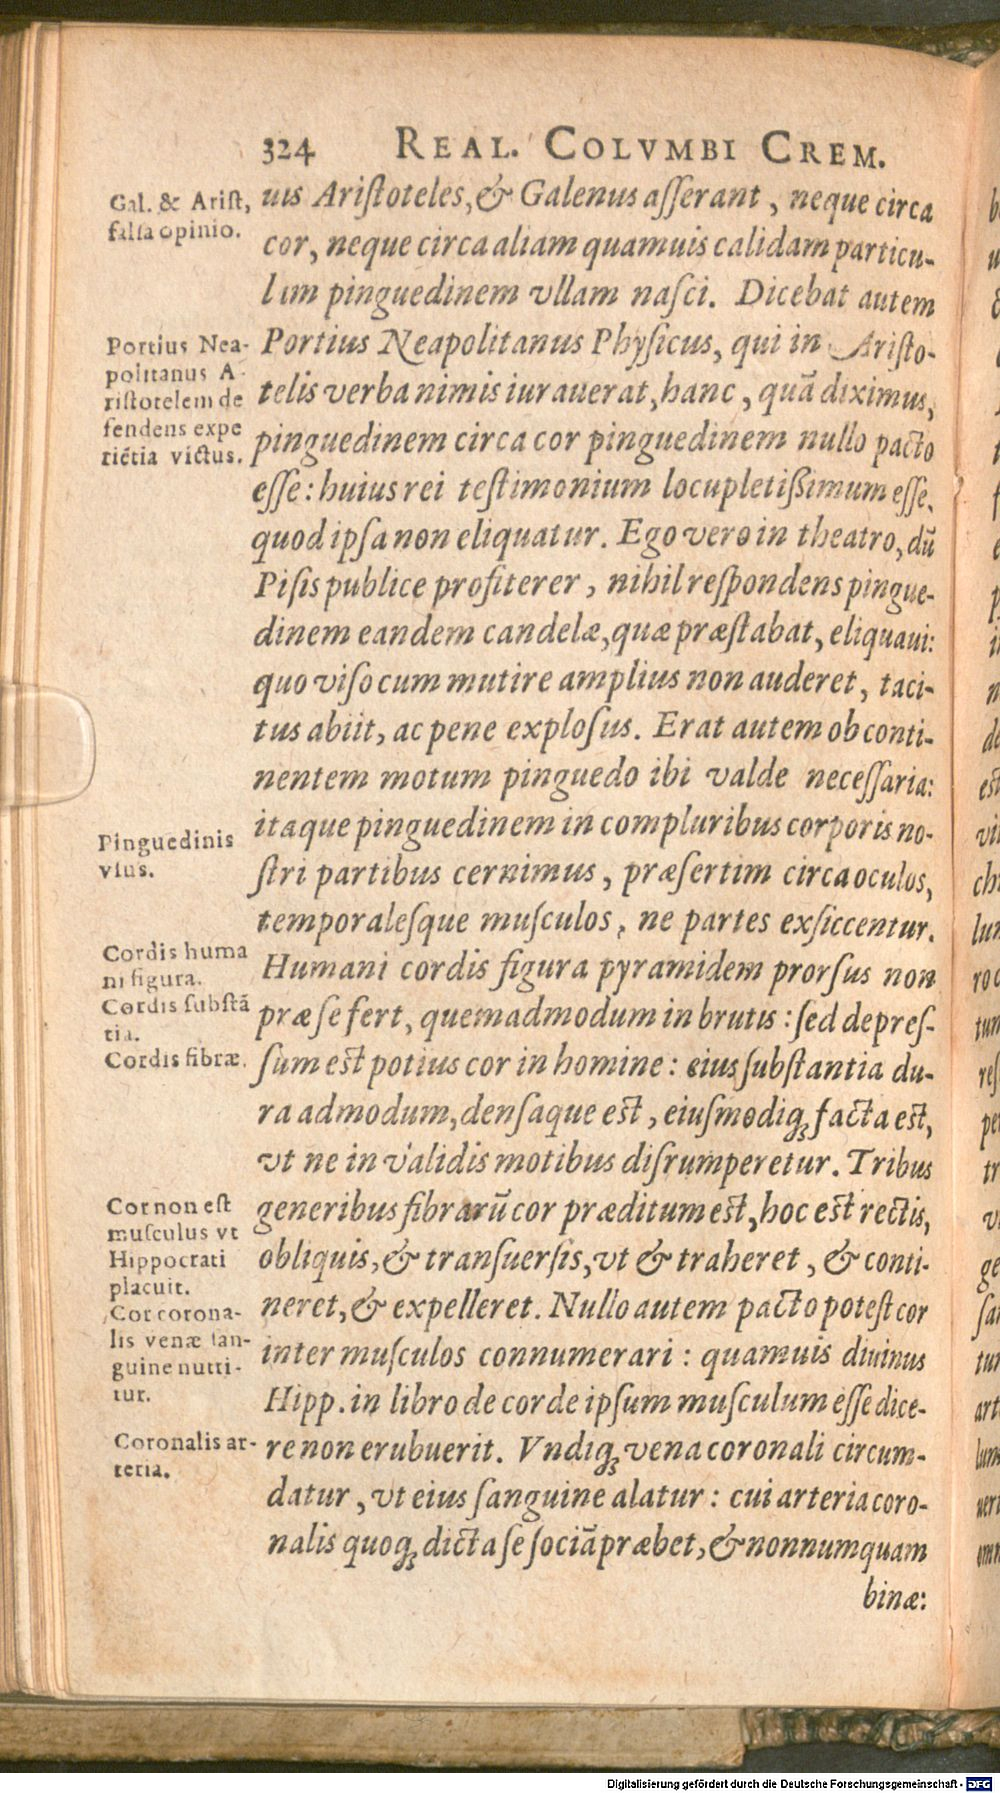 324 REAL. COLVMBI CREM.
Gal. & Arist,
falsa opinio.
Portius Nea-
politanus A-
ristotelem de
fendens expe
riẽtia victus.
Pinguedinis
vsus.
Cordis huma
ni figura.
Cordis substã
tia.
Cordis fibræ.
Cor non est
musculus vt
Hippocrati
placuit.
Cor corona-
lis venæ san-
guine nutri-
tur.
Coronalis ar-
teria.
uis Aristoteles, & Galenus asserant, neque circa
cor, neque circa aliam quamuis calidam particu-
lam pinguedinem vllam nasci. Dicebat autem
Portius Neapolitanus Physicus, qui in Aristo-
telis verba nimis iurauerat, hanc, quã diximus,
pinguedinem circa cor pinguedinem nullo pacto
esse: huius rei testimonium locupletißimum esse,
quod ipsa non eliquatur. Ego vero in theatro, dũ
Pisis publice profiterer, nihil respondens pingue-
dinem eandem candelæ, quæ præstabat, eliquaui:
quo viso cum mutire amplius non auderet, taci-
tus abiit, ac pene explosus. Erat autem ob conti-
nentem motum pinguedo ibi valde necessaria:
itaque pinguedinem in compluribus corporis no-
stri partibus cernimus, præsertim circa oculos,
temporalesque musculos, ne partes exsiccentur.
Humani cordis figura pyramidem prorsus non
præ se fert, quemadmodum in brutis: sed depres-
sum est potius cor in homine: eius substantia du-
ra admodum, densaque est, eiusmodiq; facta est,
vt ne in validis motibus disrumperetur. Tribus
generibus fibrarũ cor præditum est, hoc est rectis,
obliquis, & transuersis, vt & traheret, & conti-
neret, & expelleret. Nullo autem pacto potest cor
inter musculos connumerari: quamuis diuinus
Hipp. in libro de corde ipsum musculum esse dice-
re non erubuerit. Vndiq; vena coronali circum-
datur, vt eius sanguine alatur: cui arteria coro-
nalis quoq; dicta se sociã præbet, & nonnumquam
binæ:
Digitalisierung gefördert durch die Deutsche Forschungsgemeinschaft - DFG